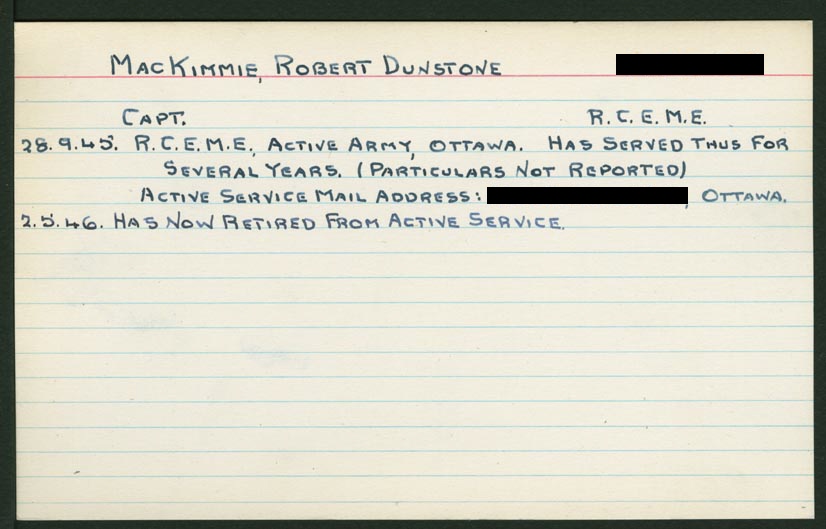 MACKIMMIE, ROBERT DUNSTONE
CAPT. R.C.E.M.E.
28.9.45. R.C.E.M.E., ACTIVE ARMY, OTTAWA. HAS SERVED THUS FOR
SEVERAL YEARS. (PARTICULARS NOT REPORTED)
ACTIVE SERVICE MAIL ADDRESS: , OTTAWA.
2.5.46. HAS NOW RETIRED FROM ACTIVE SERVICE.